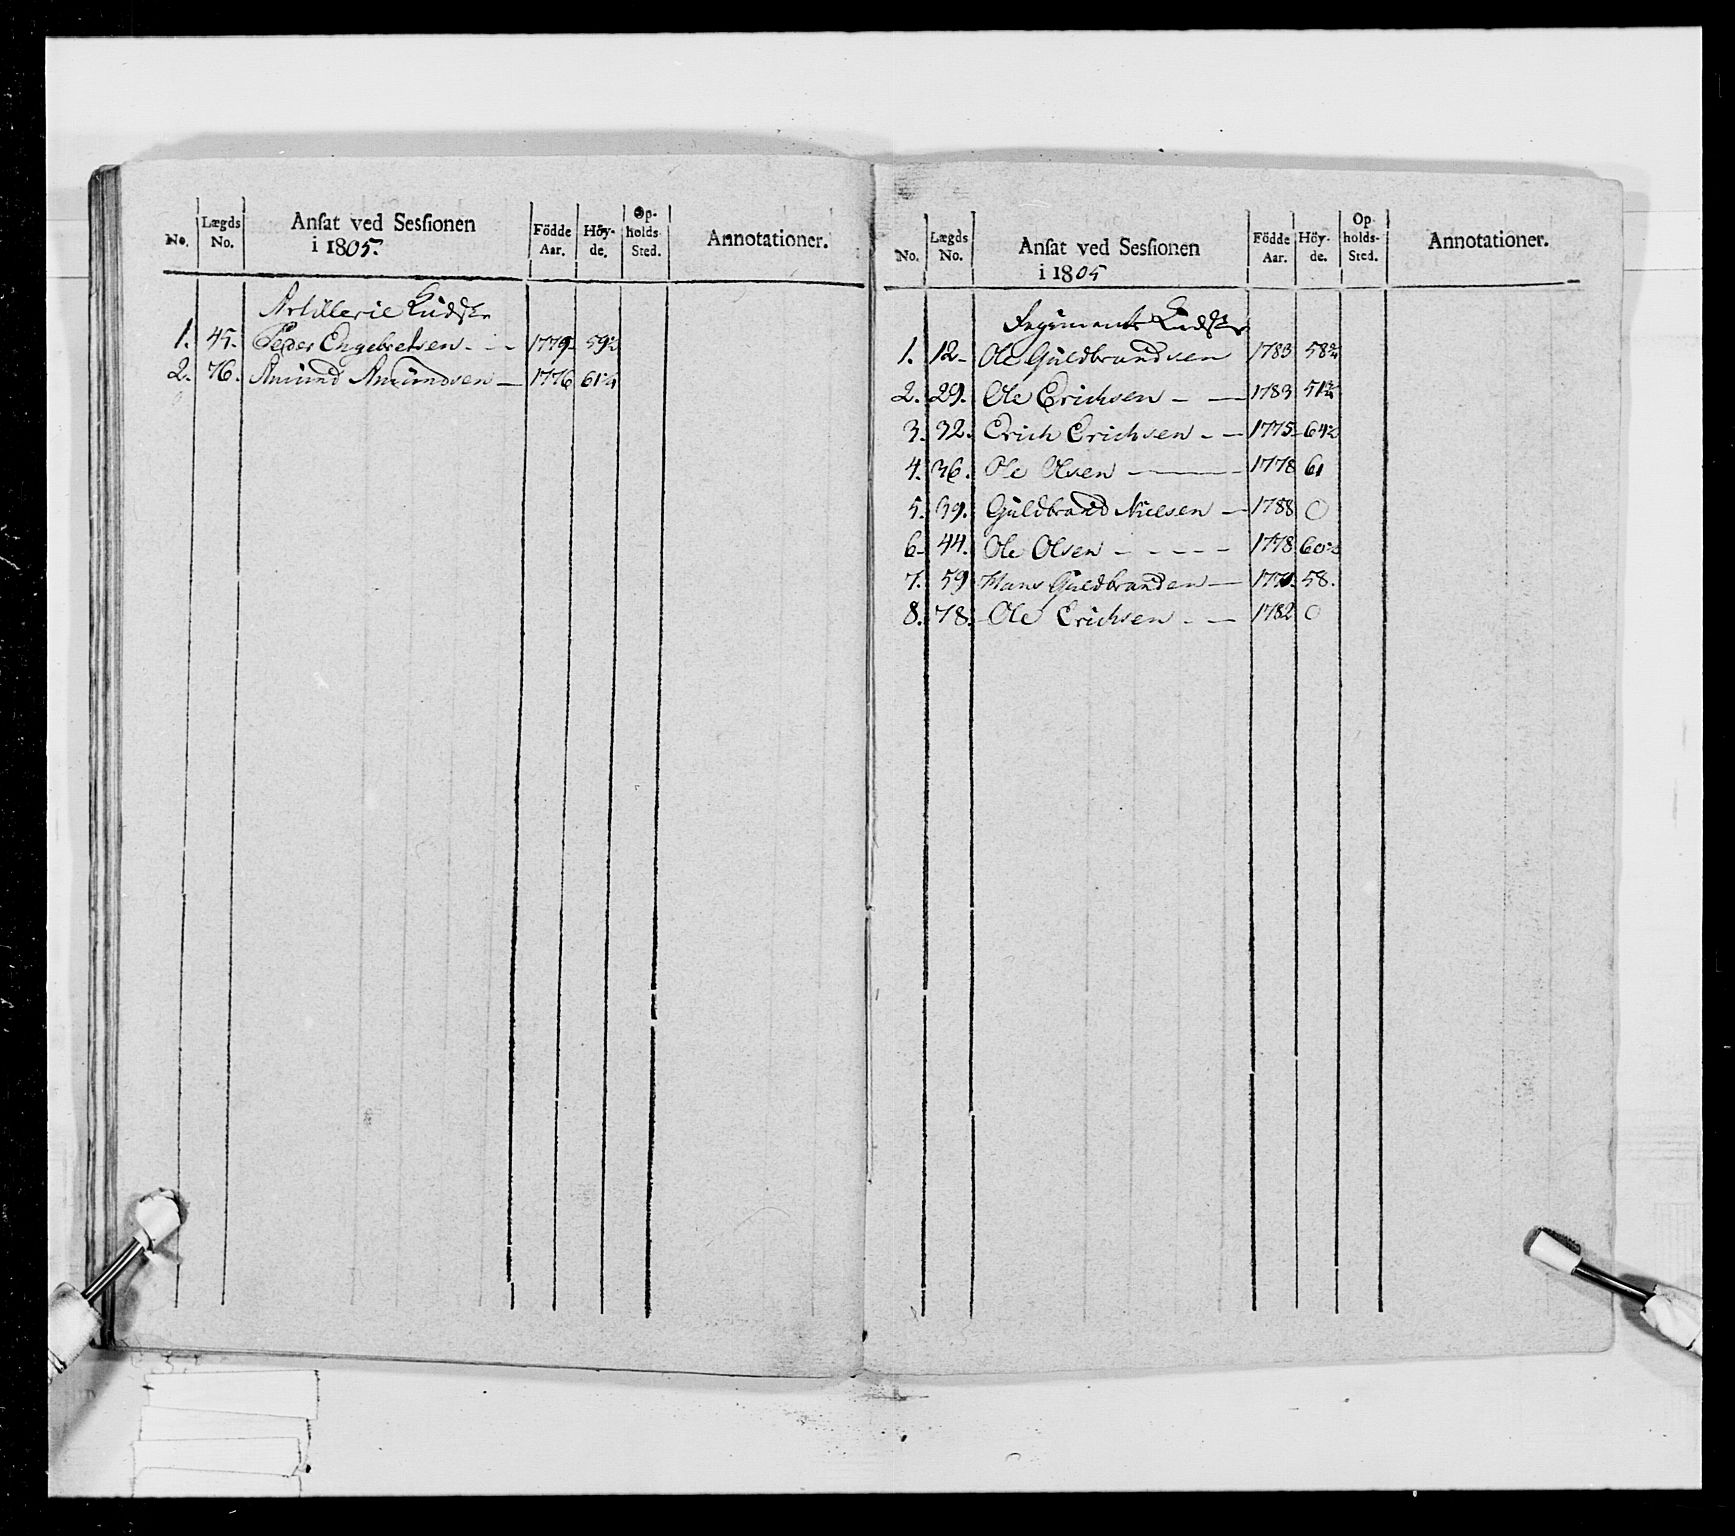 No. Lægds No. Ansat ved Sessionen i 1805. Födde Aar. Höyde. Opholds-Sted. Annotationer.
Artillerie Kudske
1. 45. Peder Engebretsen - - - 1779 59½
2. 76. Amund Amundsen — 1776 61¼
No. Lægds No. Ansat ved Sessionen i 1805 Födde Aar. Höy-de. Op-holds-Sted. Annotationer.
Regiments Kudske
1. 12- Ole Guldbrandsen 1783 58¾
2. 29. Ole Erichsen - — 1783 51¾
3. 32. Erich Erichsen - — 1775 64½
4. 36. Ole Olsen — 1778 61
5. 39. Guldbrand Nielsen — 1788 0
6. 44. Ole Olsen - - - - - 1778 60½
7. 59 Hans Guldbrandsen — 58.
8. 78. Ole Erichsen - — 1782 0